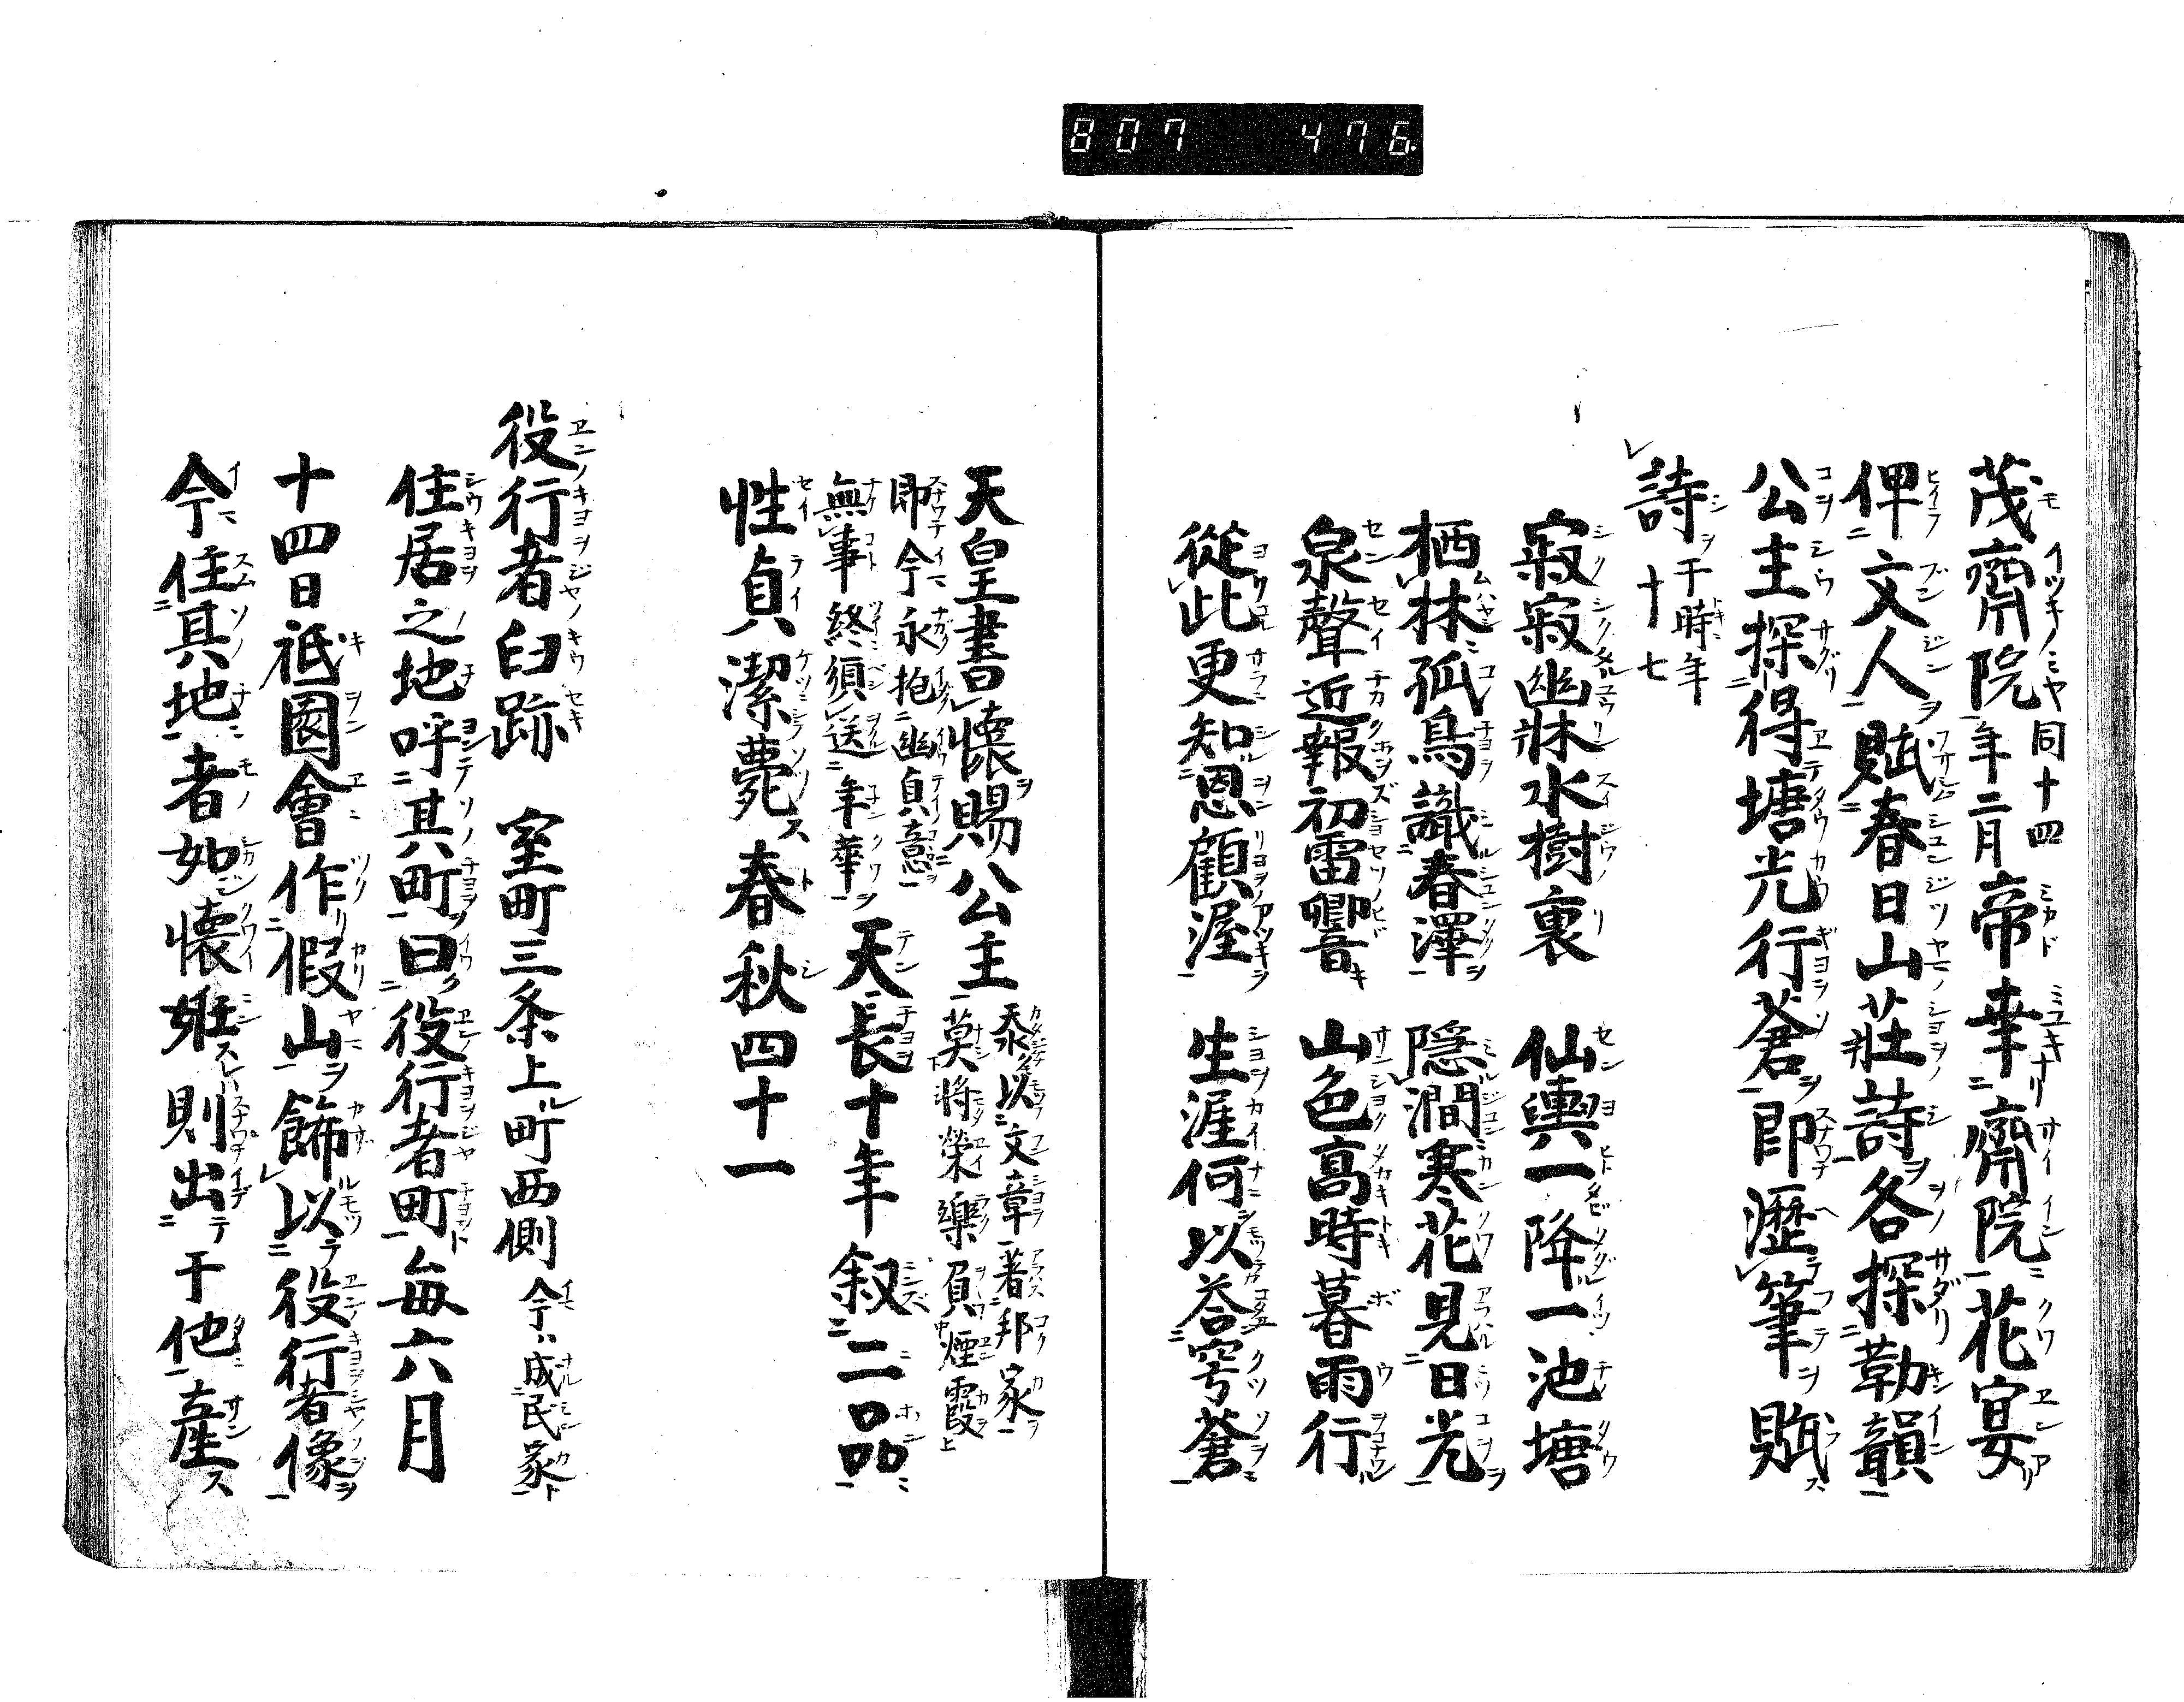 807 476
茂齋院同十四年二月帝幸齋院花宴
俾文人賦春日山莊詩各探勒韻
公主探得塘光行蒼即瀝筆賦
詩于時年十七
寂寂幽牀水樹裏 仙輿一降一池塘
栖林孤鳥識春澤 隠澗寒花見日光
泉聲近報初雷響 山色高時暮雨行
從此更知恩顧渥 生涯何以荅穹蒼
天皇書懐賜公主忝以文章著邦家莫將榮樂負煙霞
即今永抱幽貞意無事終須送年華天長十年叙二品
性貞潔薨春秋四十一
役行者臼跡 室町三条上ル町西側今ハ成民家ト
住居之地呼其町曰役行者町毎六月
十四日祇園會作假山飾以テ役行者像
今住其地者如懐姙スレハ則出テ于他産ス